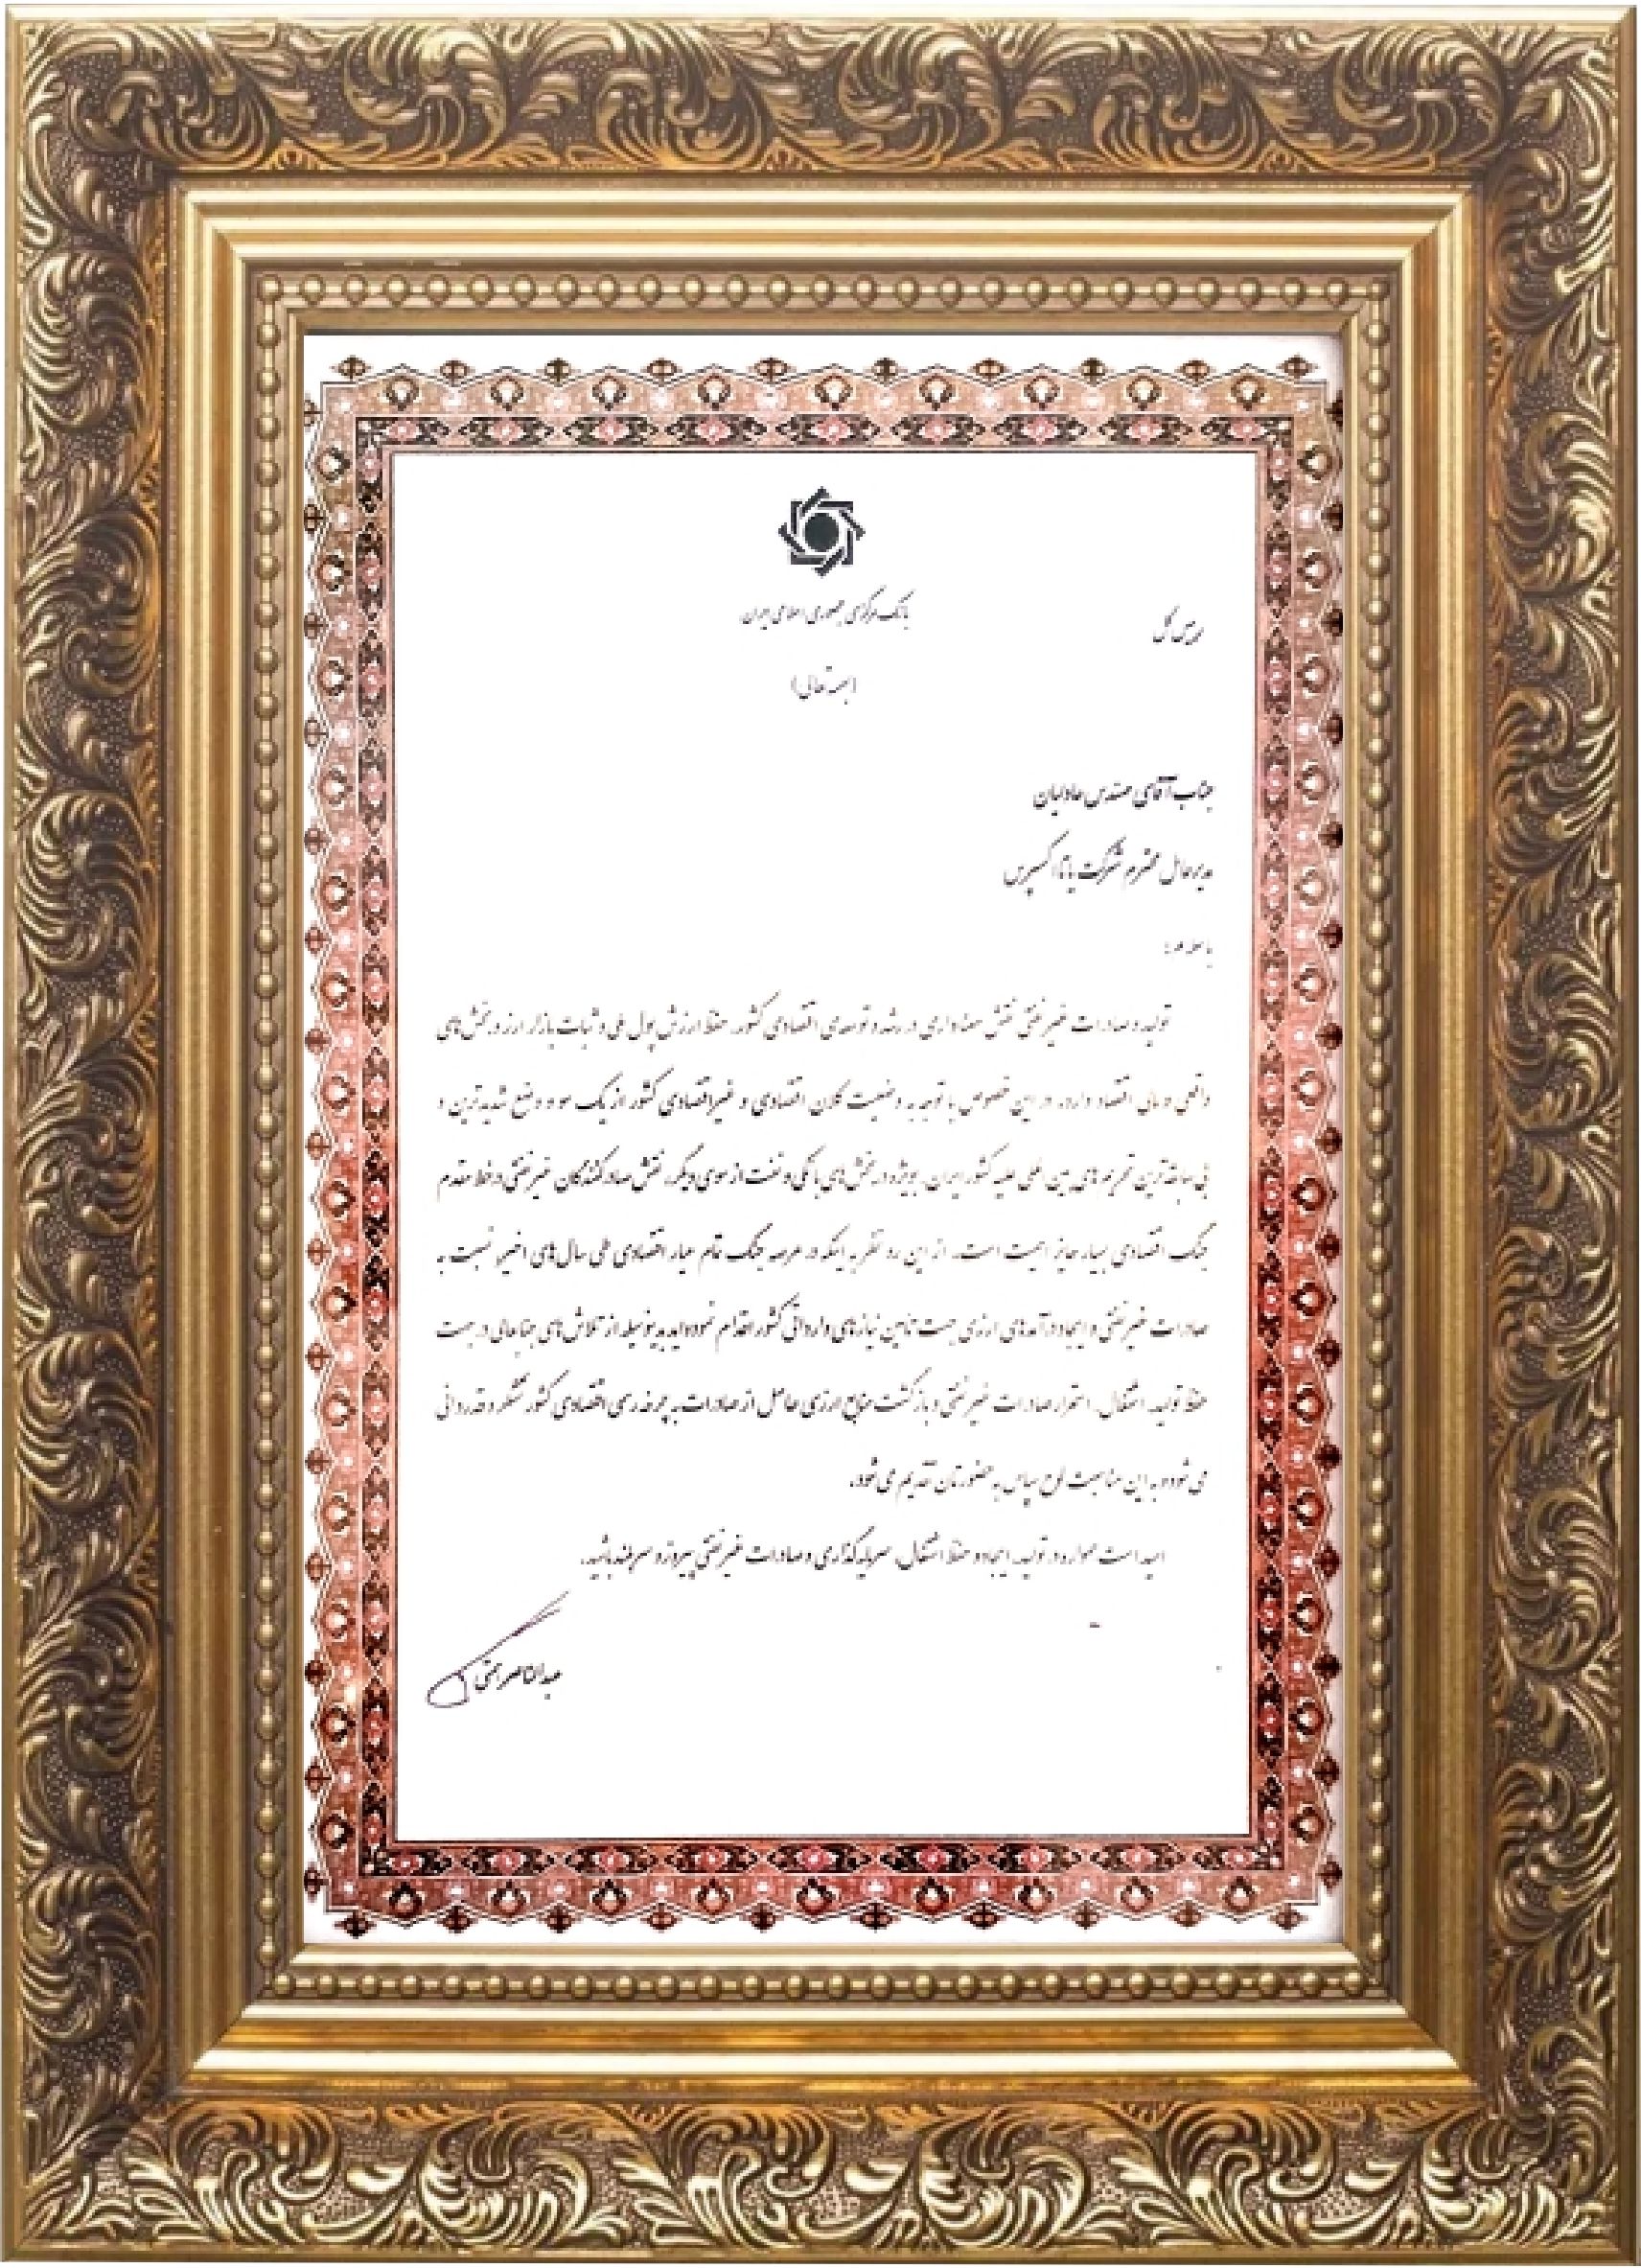 بانک مرکزی جمهوری اسلامی ایران
رییس کل
(بسمه تعالی)
جناب آقای مهندس عادلیان
مدیرعامل محترم شرکت یاتا اکسپرس
با سلام؛
تولید و صادرات غیرنفتی نقش معناداری در رشد و توسعه‌ی اقتصادی کشور، حفظ ارزش پول ملی و ثبات بازار ارز و بخش‌های
واقعی و مالی اقتصاد دارد. در این خصوص با توجه به وضعیت کلان اقتصادی و غیراقتصادی کشور از یک سو و وضع شدیدترین و
بی سابقه‌ترین تحریم‌های بین المللی علیه کشور ایران، بویژه در بخش‌های بانکی و نفت از سوی دیگر، نقش صادرکنندگان غیرنفتی در خط مقدم
جنگ اقتصادی بسیار حایز اهمیت است. از این رو نظر به اینکه در عرصه جنگ تمام عیار اقتصادی طی سال‌های اخیر نسبت به
صادرات غیرنفتی و ایجاد درآمدهای ارزی جهت تأمین نیازهای وارداتی کشور اقدام نموده‌اید بدینوسیله از تلاش‌های جنابعالی در جهت
حفظ تولید، اشتغال، استمرار صادرات غیرنفتی و بازگشت منابع ارزی حاصل از صادرات به چرخه‌ی اقتصادی کشور تشکر و قدردانی
می شود و به این مناسبت لوح سپاس به حضورتان تقدیم می‌شود.
امید است همواره در تولید، ایجاد و حفظ اشتغال، سرمایه گذاری و صادرات غیرنفتی پیروز و سربلند باشید.
عبدالناصر همتی